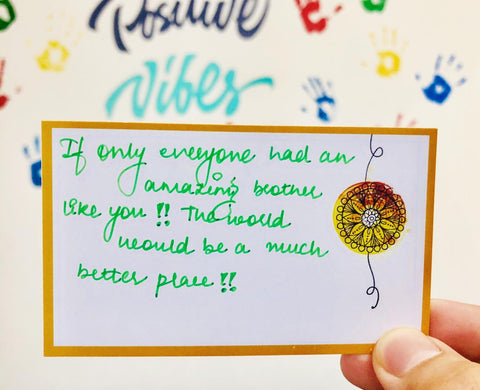 Positive
Vibes
If only everyone had an
amazing brother
like you !! The world
would be a much
better place !!